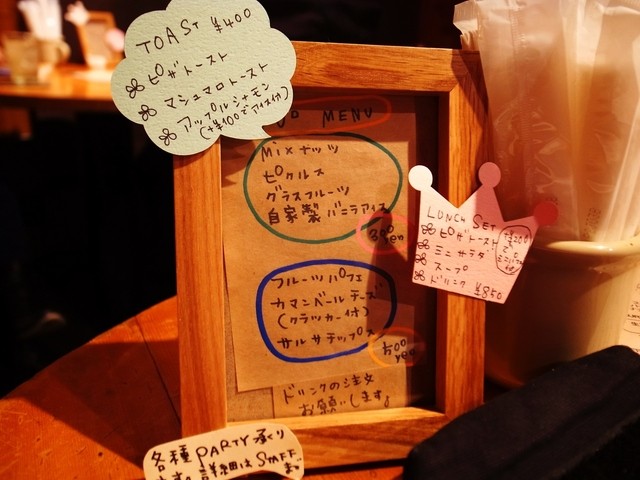 TOAST ¥400
ピザトースト
マシュマロトースト
アップルシナモン
(+¥100でアイス付)
MENU
Mixナッツ
ピクルス
グラスフルーツ
自家製バニラアイス
300
yen
フルーツパフェ
カマンベールチーズ
(クラッカー付)
サルサチップス
500
yen
ドリンクの注文
お願いします。
LUNCH SET
ピザトースト
ミニサラダ
スープ
ドリンク ¥850
+¥200
で
各種PARTY承り
詳細はSTAFF
まで